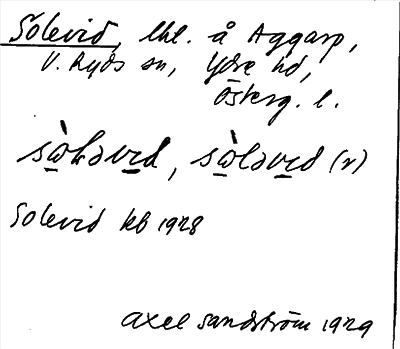 Solevid, lht. å Aggarp,
V. Ryds sn, Ydre hd,
Österg. l.
sὼləvıd, sὼləvıd (r)
Solevid kb 1928
Axel Sandström 1929